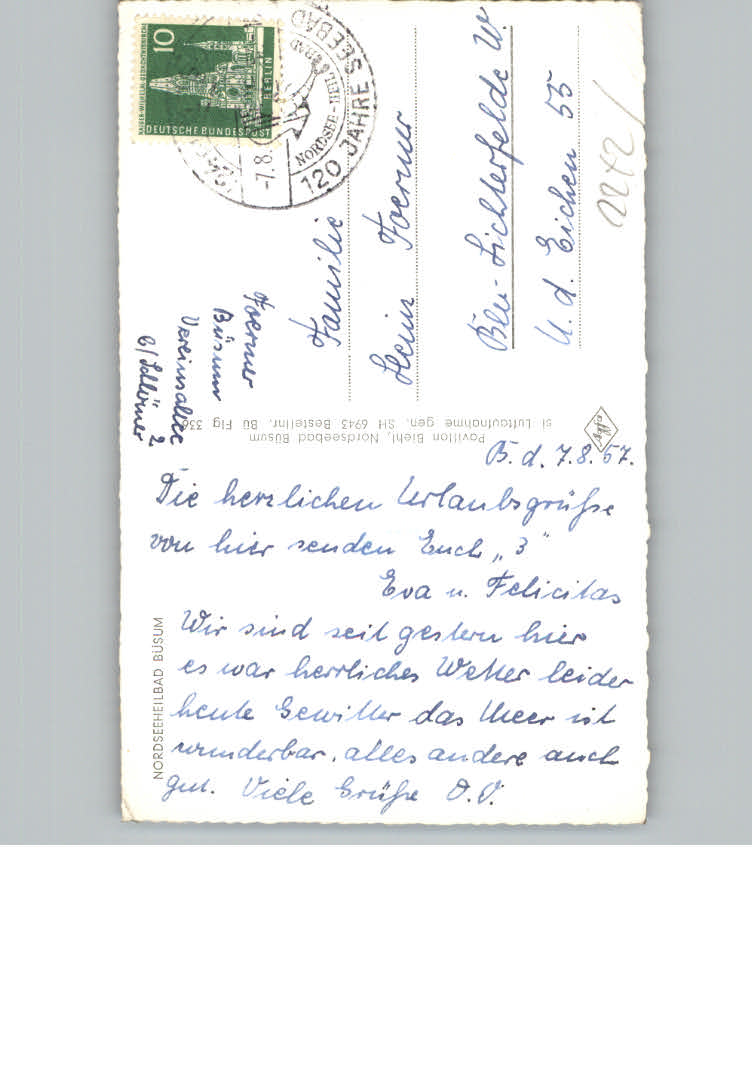 10
KAISER-WILHELM-GEDÄCHTNISKIRCHE
BERLIN
DEUTSCHE BUNDESPOST
120 JAHRE SEEBAD
NORDSEE-HEIL
-7.8.
Foerner
Büsum
Vereinsallee 2
b/Schlömer
Familie
Heinz Foerner
Bln-Lichterfelde W.
U. d. Eichen 55
2242/
Pavillon Biehl, Nordseebad Büsum
si Luftaufnahme gen. SH 6943 Bestellnr. Bü Flg 336
B. d. 7.8.57.
Die herzlichen Urlaubsgrüße
von hier senden Euch „3"
Eva u. Felicitas
Wir sind seit gestern hier
es war herrliches Wetter leider
heute Gewitter das Meer ist
wunderbar, alles andere auch
gut. Viele Grüße O. V.
NORDSEEHEILBAD BÜSUM